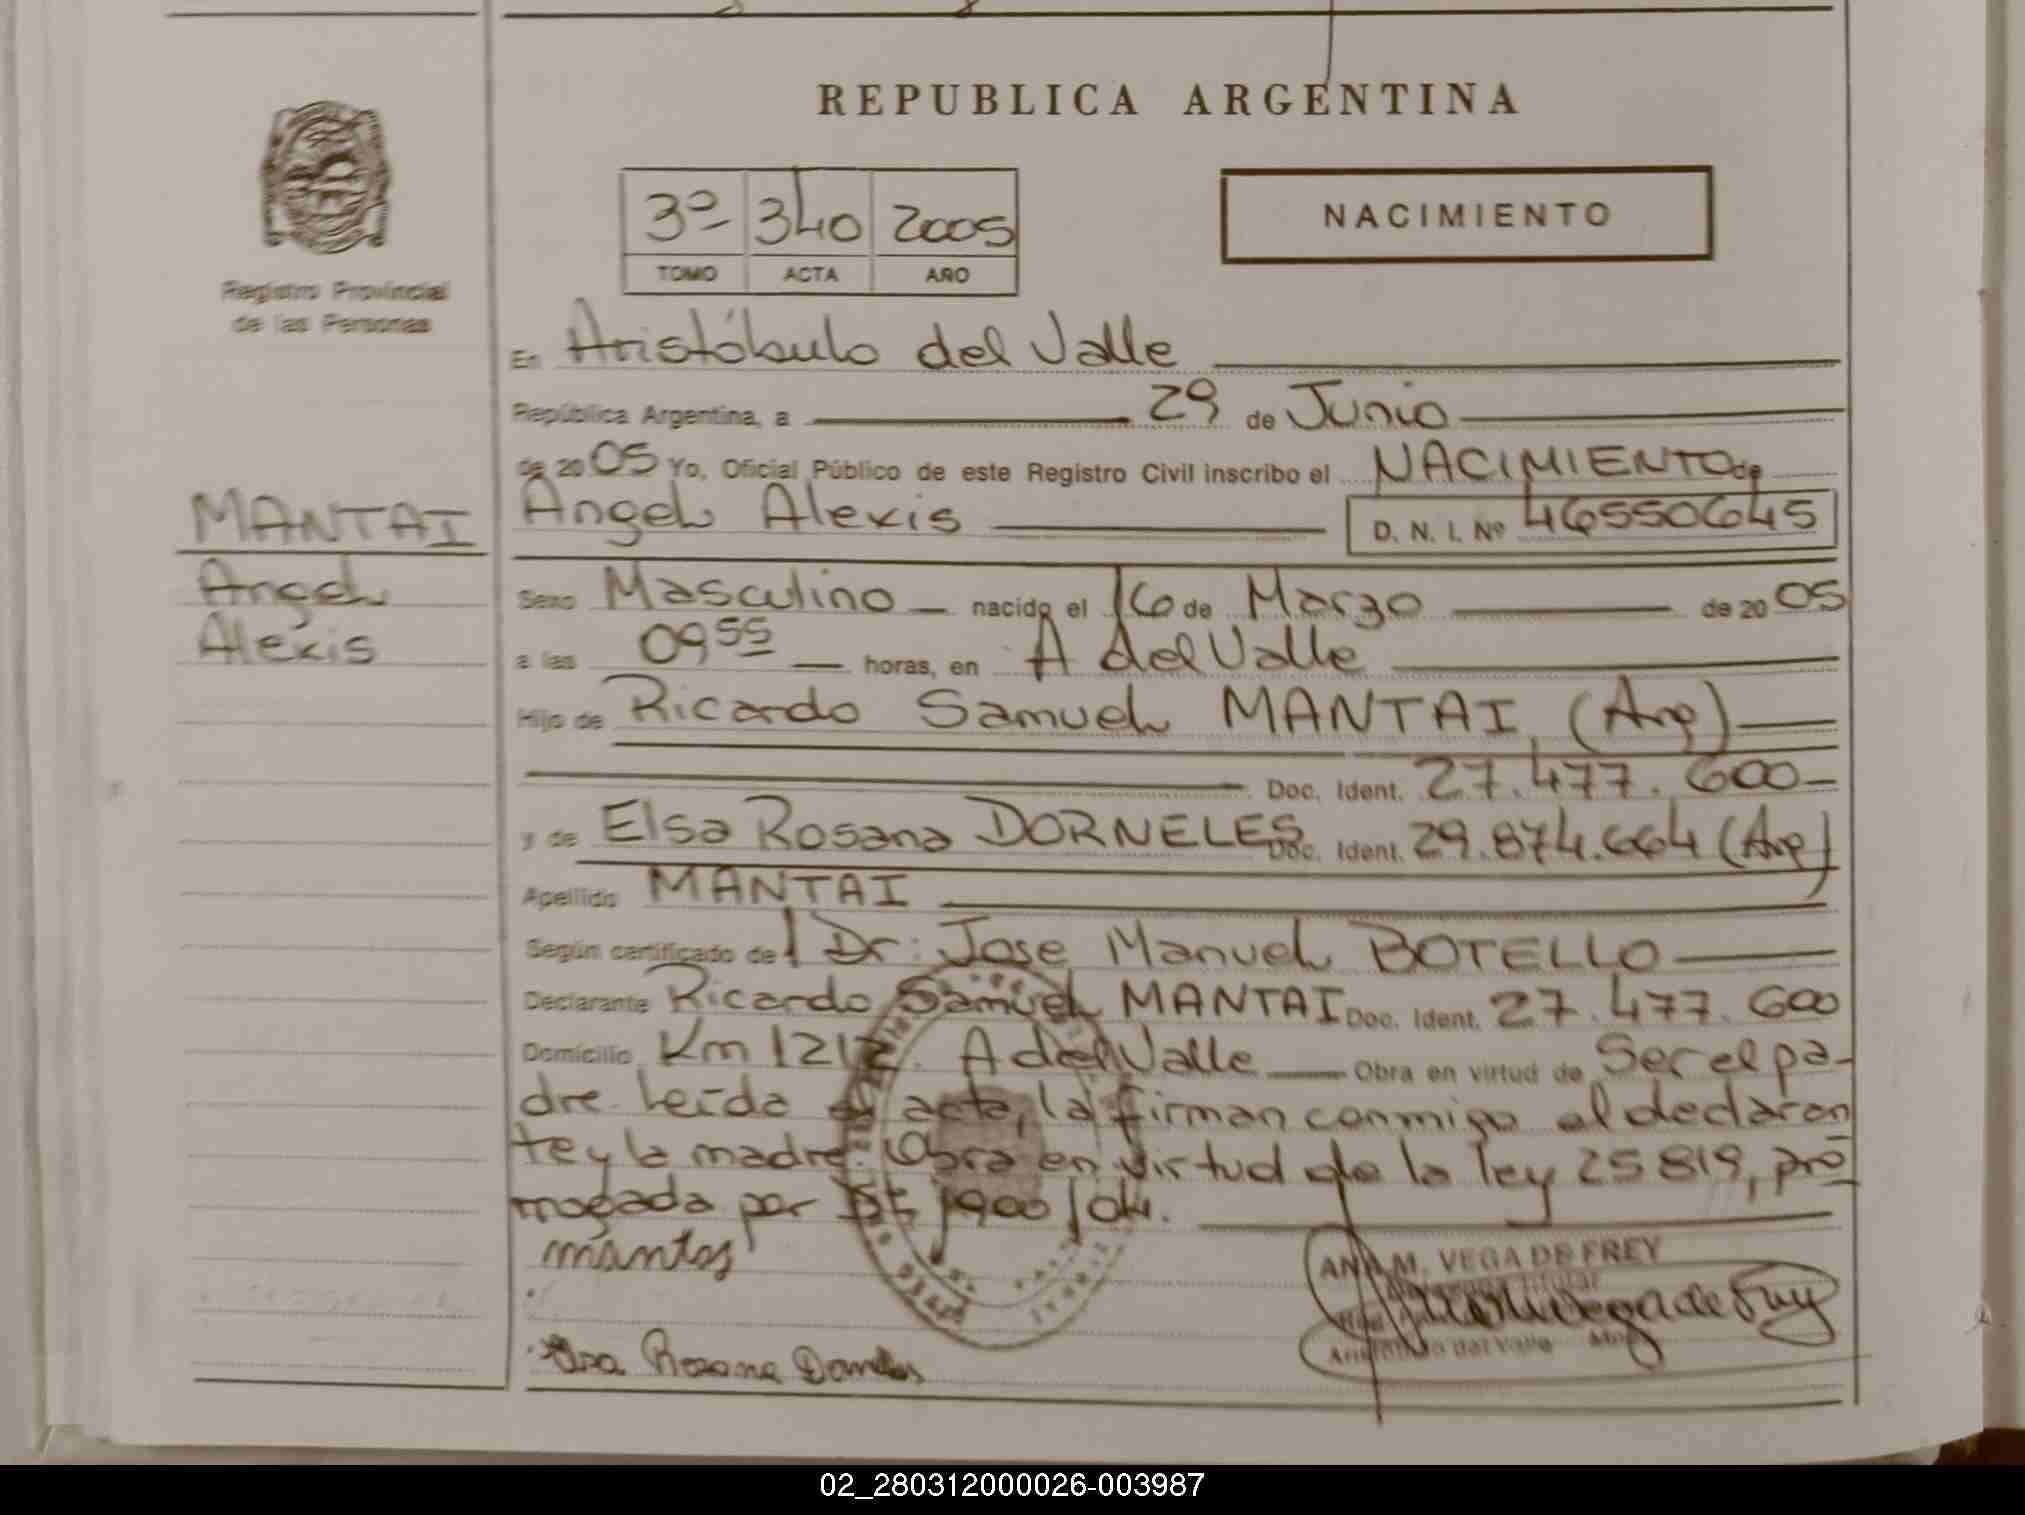 REPUBLICA ARGENTINA
3º 340 2005
TOMO ACTA AÑO
NACIMIENTO
Registro Provincial
de las Personas
En Aristóbulo del Valle
República Argentina, a 29 de Junio
de 2005 Yo, Oficial Público de este Registro Civil inscribo el NACIMIENTO de
MANTAI
Angel
Alexis
Angel Alexis D. N. I. Nº 46550645
Sexo Masculino nacido el 16 de Marzo de 2005
a las 09 55 horas, en A del Valle
Hijo de Ricardo Samuel MANTAI (Arg)
Doc. Ident. 27.477.600
y de Elsa Rosana DORNELES Doc. Ident. 29.874.664 (Arg)
Apellido MANTAI
Según certificado de Dr: Jose Manuel BOTELLO
Declarante Ricardo Samuel MANTAI Doc. Ident. 27.477.600
Domicilio Km 1212. A del Valle Obra en virtud de Ser el pa-
dre. Leída el acta, la firman conmigo el declaran
te y la madre. Obra en virtud de la ley 25819, pro
mogada por 1900/04.
mantas
ANA M. VEGA DE FREY
Titular
Aristóbulo del Valle
Rosana
02_280312000026-003987